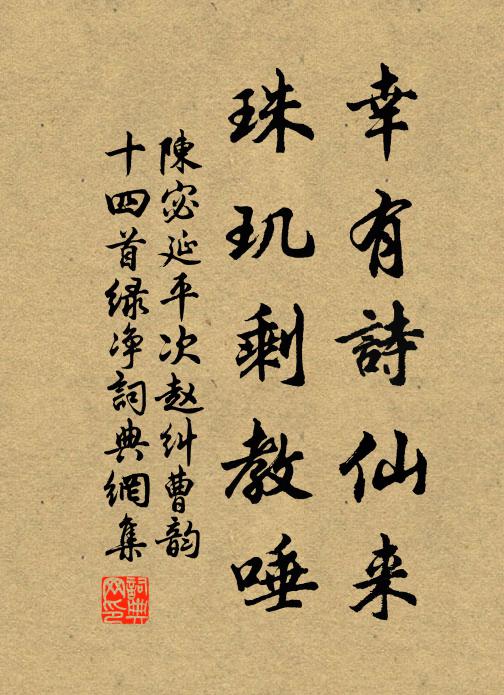 幸有詩仙来
珠玑剩教唾
陳宓延平次赵糾曹韵
十四首绿净詞典網集
詞典网印